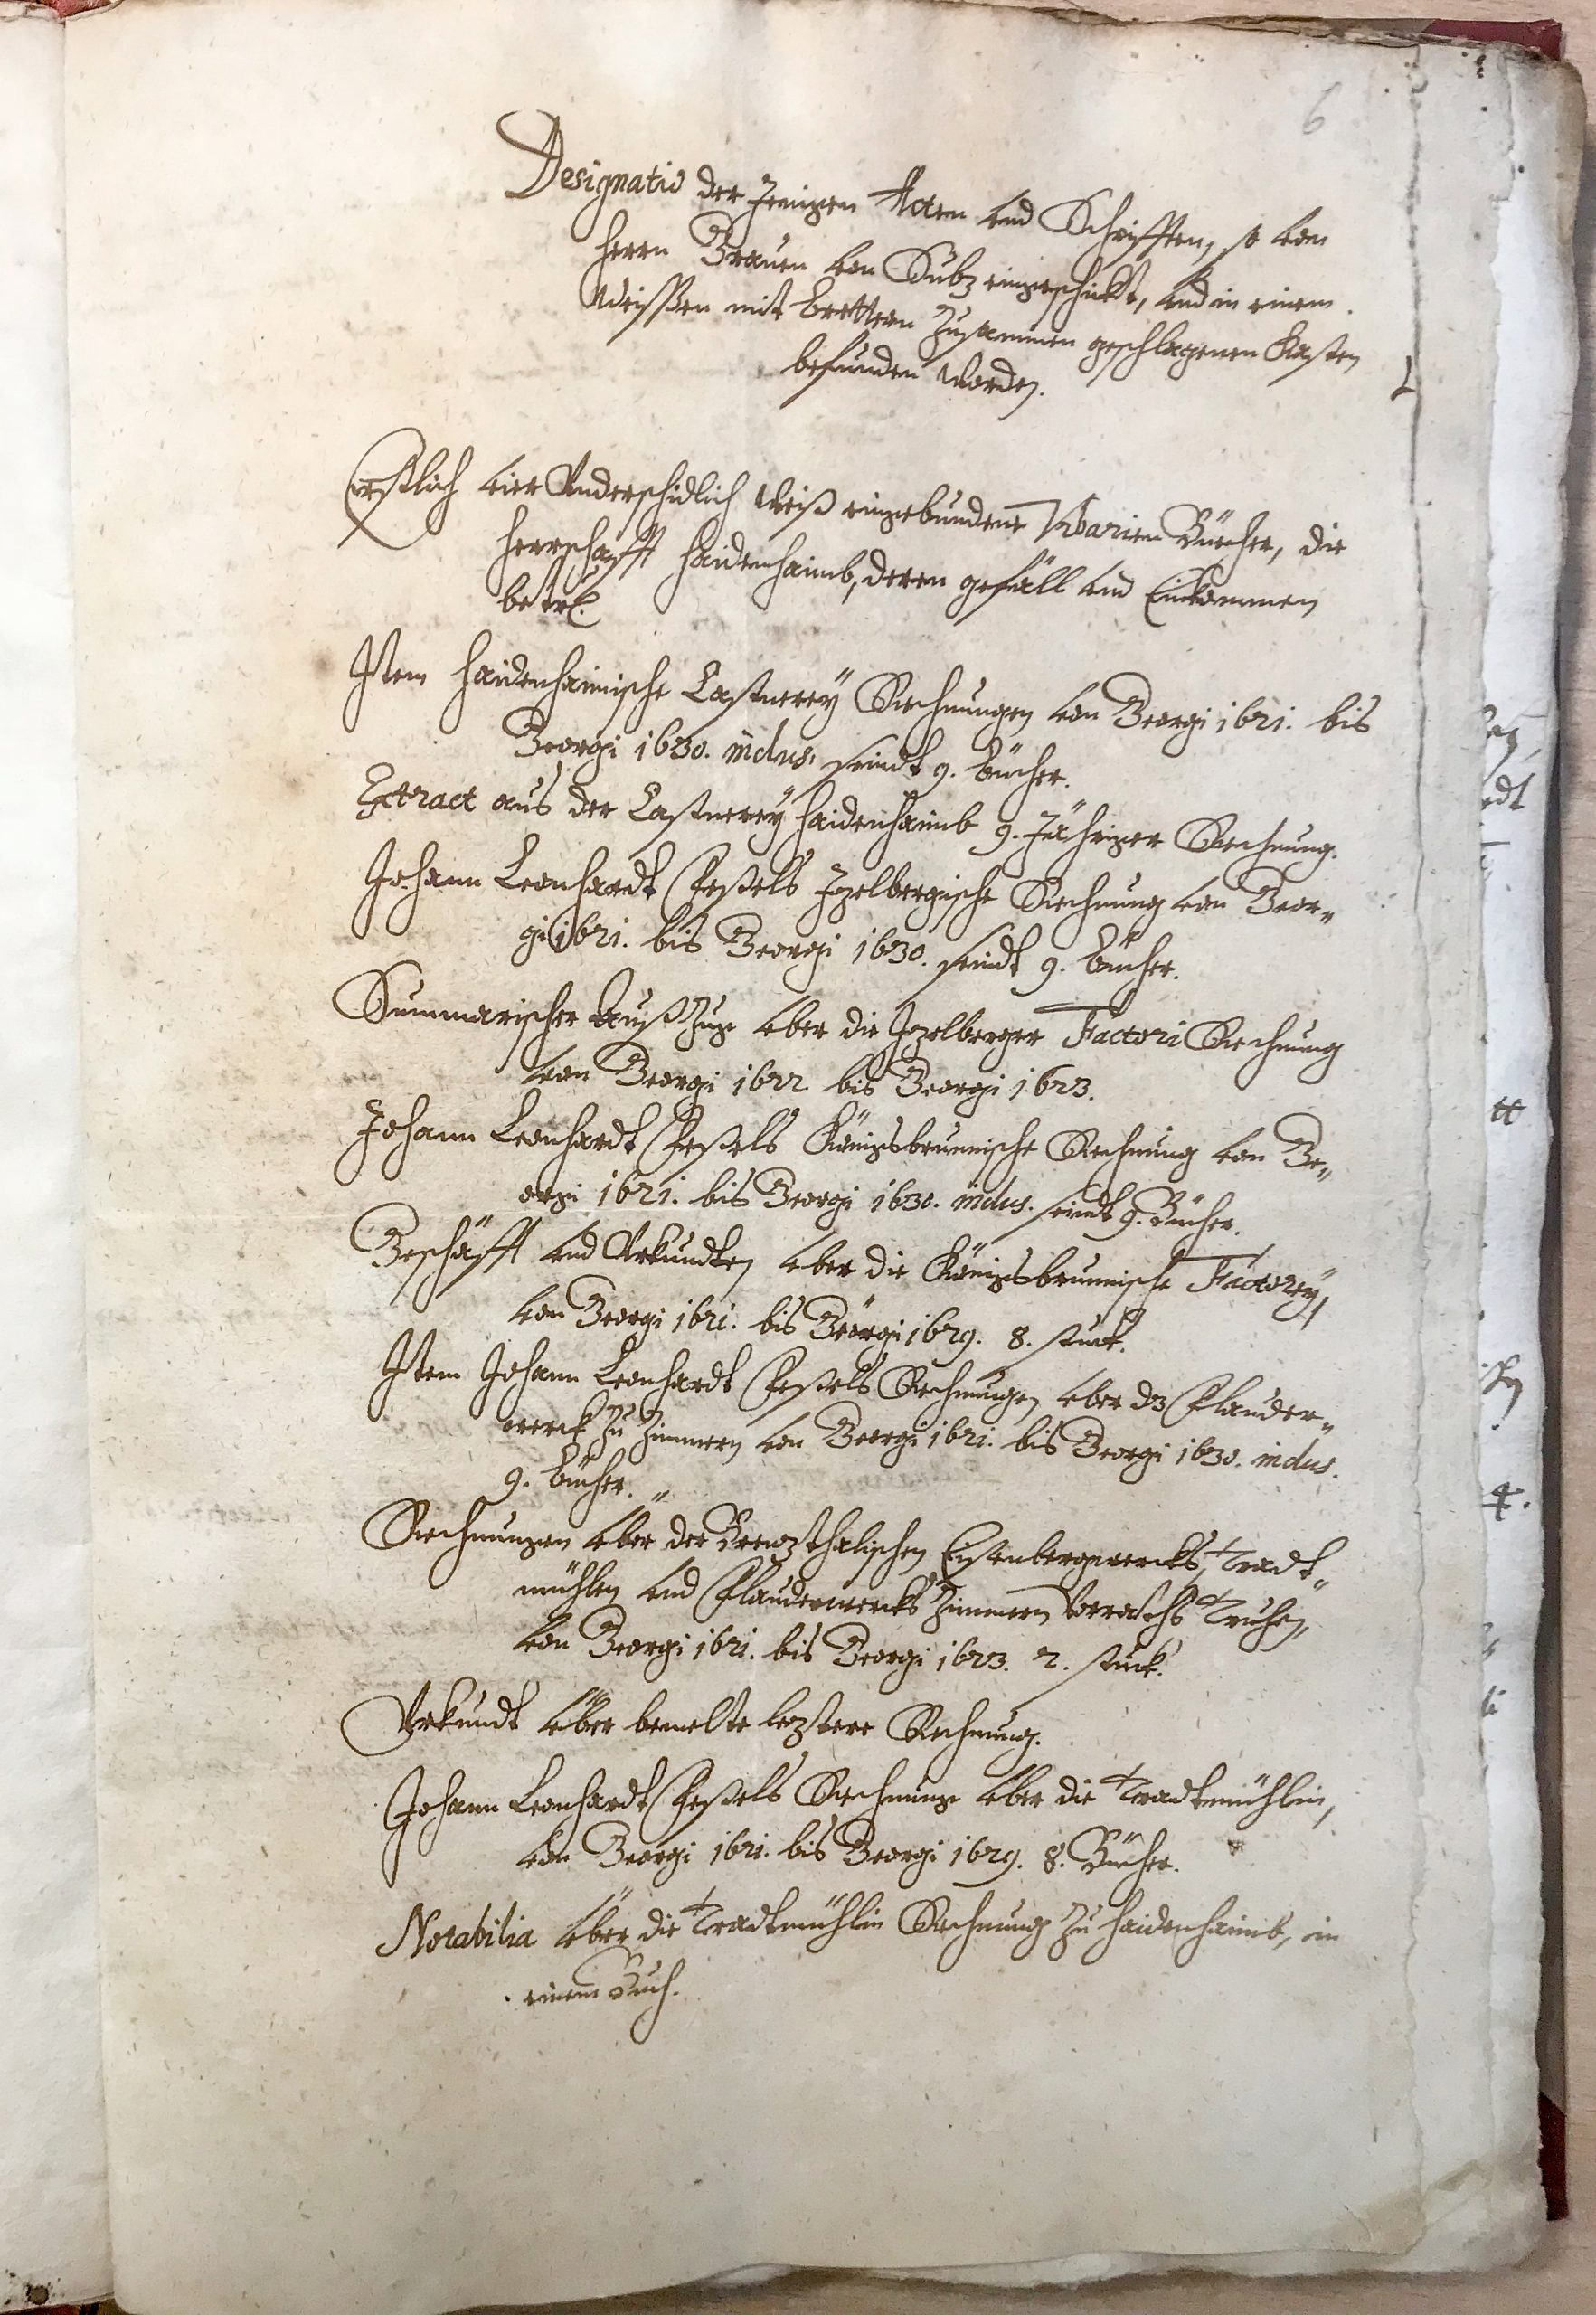 6
Designatio der Jenigen Acten vnd Schrifften, so von
Herrn Graven von Sulz eingeschickt, vnd in einem
Weissen mit brettern Zusammen geschlagenen Kasten
befunden worden.
Erstlich vier Vnderschidlich Weiß eingebundene Vrbarien Büecher, die
Herrschafft Haidenhaimb, deren gefäll vnd Einkommen
betr.
Item Haidenhaimische Castnerey Rechnungen von Georgi 1621. bis
Georgi 1630. inclus. seindt 9. bücher.
Extract aus der Castnerey Haidenhaimb 9. Jähriger Rechnung.
Johann Leonhardt Jzelbergische Rechnung von Geor„
gi 1621. bis Georgi 1630. seindt 9. bücher.
Summarischer Außzug vber die Jzelberger Factori Rechnung
von Georgi 1622 bis Georgi 1623.
Johann Leonhardt Königsbrunnische Rechnung von Ge„
orgi 1621. bis Georgi 1630. inclus. seindt 9. Bücher.
Geschäfft vnd Vrkundten vber die Königsbrunnische Factorey,
von Georgi 1621. bis Georgi 1629. 8. stuck.
Item Johann Leonhardt Rechnungen vber dz Plauder„
werck zu Zimmern von Georgi 1621. bis Georgi 1630. inclus.
9. bücher.
Rechnungen vber der Brenzthalischen Eysenbergwercks, Tradt„
mühlen vnd Plauderwercks Zimmern Vorraths Truhen,
von Georgi 1621. bis Georgi 1623. 2. stuck.
Vrkundt vber bemelte leztere Rechnung.
Johann Leonhardt Rechnung vber die Tradtmühlin,
von Georgi 1621. bis Georgi 1629. 8. Bücher.
Notabilia vber die Tradtmühlin Rechnung zu Haidenhaimb, in
einem Buch.